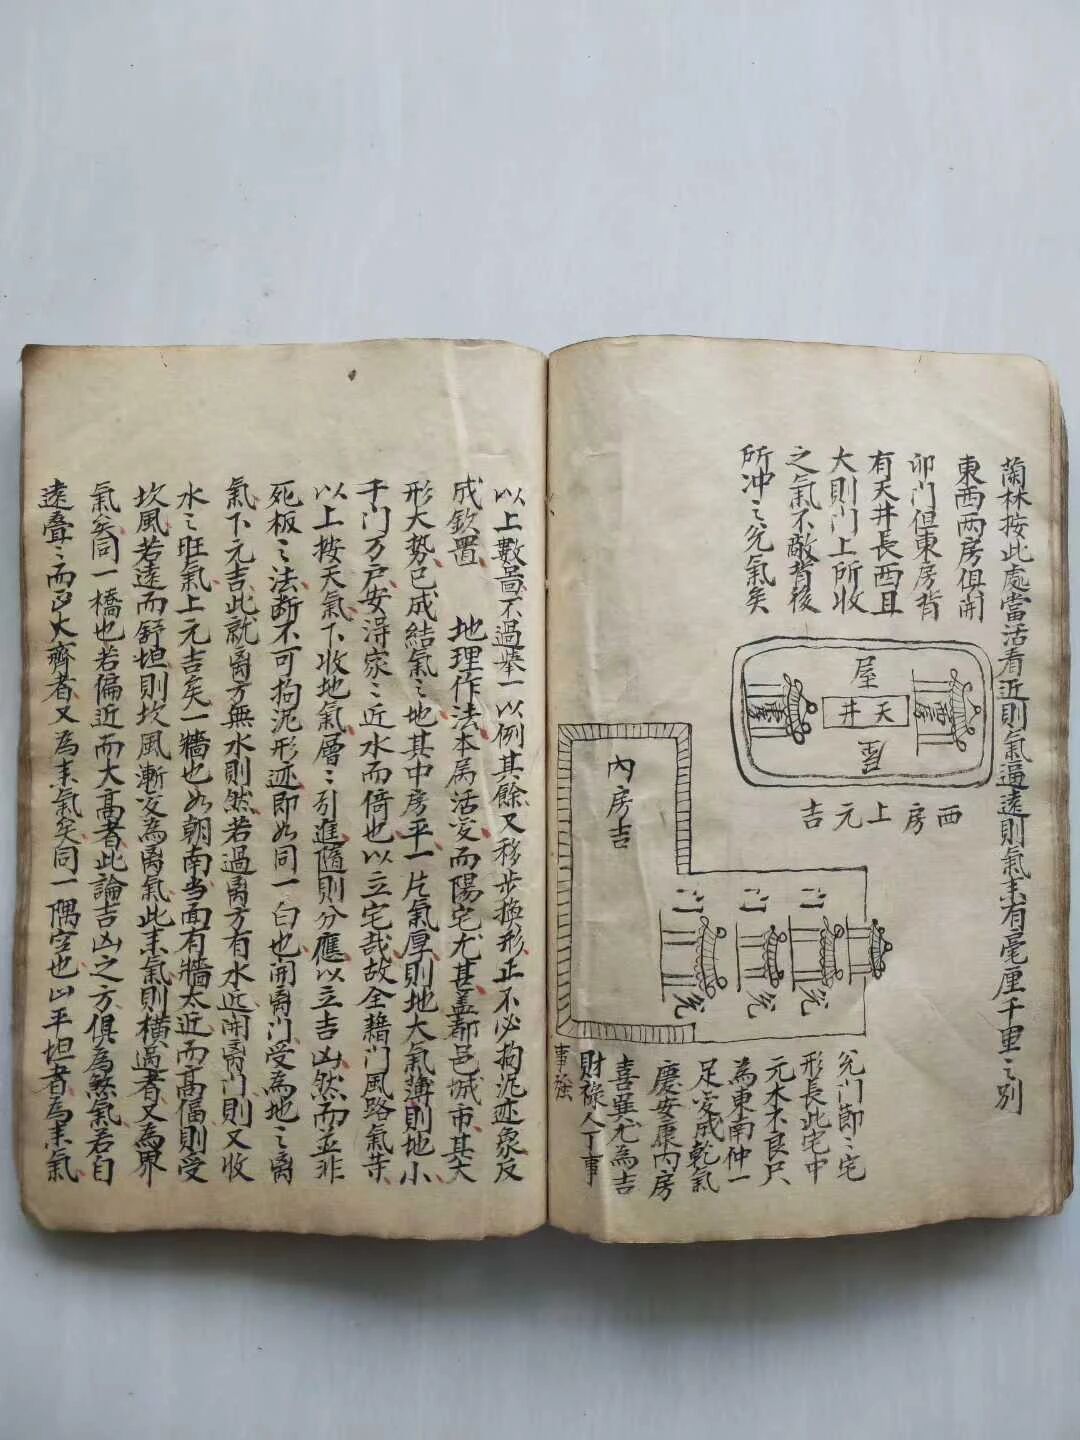 蘭林按此處當活看近則氣逼遠則氣耒有毫厘千里之別
東西兩房俱開
卯門但東房背
有天井長西且
大則門上所收
之氣不敵背後
所冲之兑氣矣
屋
天井
西房上元吉
內房吉
门
门
门
兑
兑
兑門節之宅
形長此宅中
元木木良尺
為東南仲一
足变成乾氣
慶安康內房
喜巽尤為吉
財祿人丁事
事強
以上數啚不過举一以例其餘又移步換形正不必拘泥迹象反
成欽置 地理作法本属活变而陽宅尤甚盖都邑城市其大
形大势已成结氣之地其中房平一片氣厚則地大氣薄則地小
千门万戸安淂家之近水而倚也以立宅哉故全藉门風路氣等
以上按天氣下收地氣層之引進隨則分應以立吉凶然而並非
死板之法断不可拘泥形迹即如同一臼也開离门受為地之离
氣下元吉此就离方無水則然若過离方有水近開离门則又收
水之旺氣上元吉矣一牆也如朝南当面有牆太近而高偪則受
坎風若遠而舒坦則坎風漸变為离氣此耒氣則橫過者又為界
氣矣同一橋也若偏近而大高者此論吉凶之方俱為煞氣若自
遠叠之而大齊者又為耒氣矣同一隅空也平坦者為耒氣